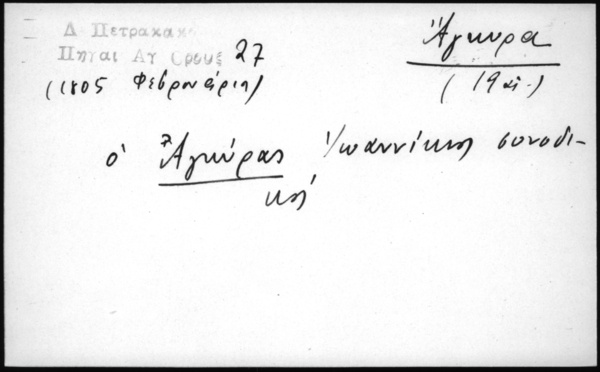 Δ Πετρακακ
Πηγαι Αγ Ορους 27
(1805 Φεβρουάριος)
Ἄγκυρα
(19 αἰ.)
ὁ Ἀγκύρας Ἰωαννίκιος συνοδι-
κός